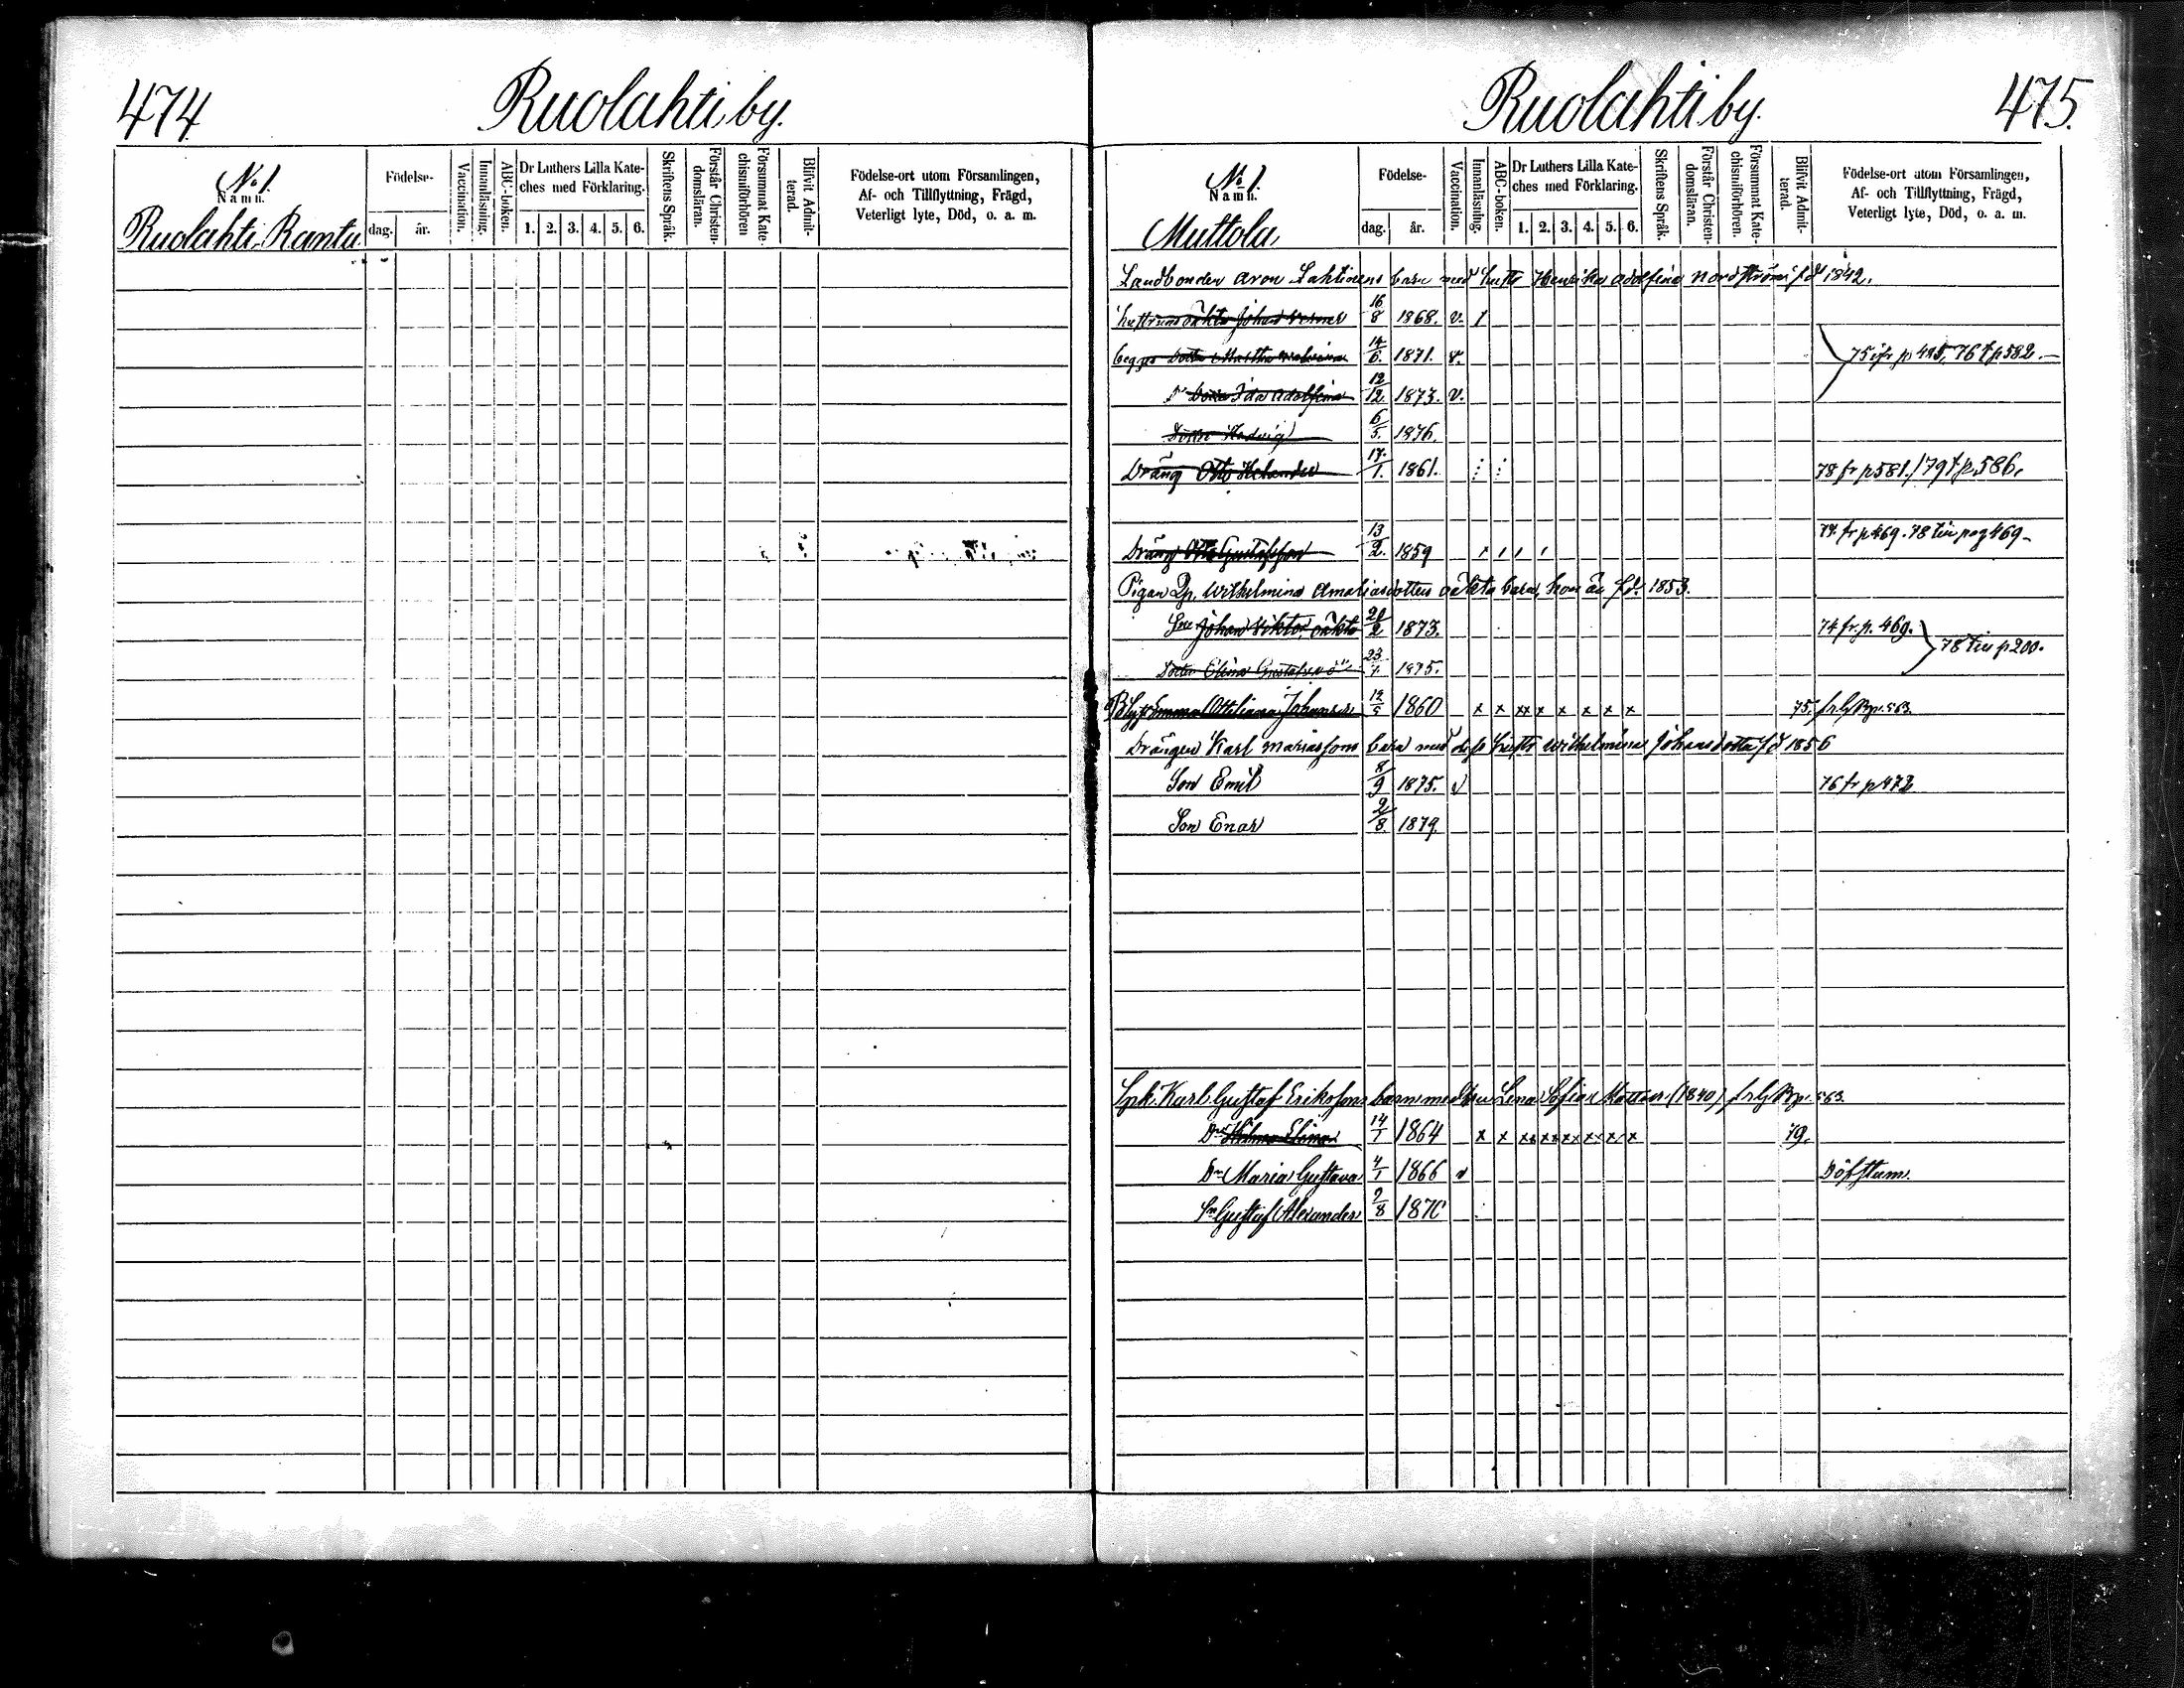 474
Ruolahti by.
No 1.
Namn.
Ruolahti Ranta
Födelse-
dag.
år.
Vaccination.
Innanläsning.
ABC-boken.
Dr Luthers Lilla Kate-
ches med Förklaring.
1. 2. 3. 4. 5. 6.
Skriftens Språk.
Förstår Christen-
domsläran.
Försummat Kate-
chismiförhören
Blifvit Admit-
terad.
Födelse-ort utom Församlingen,
Af- och Tillflyttning, Frägd,
Veterligt lyte, Död, o. a. m.
Ruolahti by.
475.
No 1.
Namn.
Muttola
Födelse-
dag.
år.
Vaccination.
Innanläsning.
ABC-boken.
Dr Luthers Lilla Kate-
ches med Förklaring.
1. 2. 3. 4. 5. 6.
Skriftens Språk.
Förstår Christen-
domsläran.
Försummat Kate-
chismiförhören.
Blifvit Admit-
terad.
Födelse-ort utom Församlingen,
Af- och Tillflyttning, Frägd,
Veterligt lyte, Död, o. a. m.
Landbonden Aron Lahtinens barn med hustr Henrika Adolfina Nordström fd 1842.
hustruns oäkta Johan 16/8 1868. v. 1
begges Dotter Martha 14/6. 1871. v. 75 p 495, 76 t p 582.
Dotter Ida Adolfina 12/12. 1873. v.
Dotter Hedvig 6/5. 1876.
Dräng Otto Helander 17/1. 1861. 78 fr p 581. / 79 t p. 586.
Dräng Otto Gustafsson 13/2. 1859 77. fr p 469. 78 till pag 469
Pigan Wilhelmina Amaliasdotters oäkta barn, hon är fd. 1853.
Johan Viktor oäkta 21/2 1873. 74 fr. p. 469. 78 till p 200.
Dotter Elina Gustafva 23/1. 1875.
Emma Ottiliana Johansdr 12/5 1860 x x xx x x x x x 75. p. 563.
Drängen Karl Mariassons barn med dess hustr Wilhelmina Johansdotter fd 1856
Son Emil 8/9 1875. v 76 fr p 472
Son Enar 2/8. 1879.
Karl Gustaf Erikssons barn med Lena Sofia (1840) p. 563.
Dr Hilma Elina 14/1 1864 x x xx xx xx x x x 79.
Dr Maria Gustava 4/1 1866 v Döfstum.
Sn Gustaf Alexander 9/8 1870